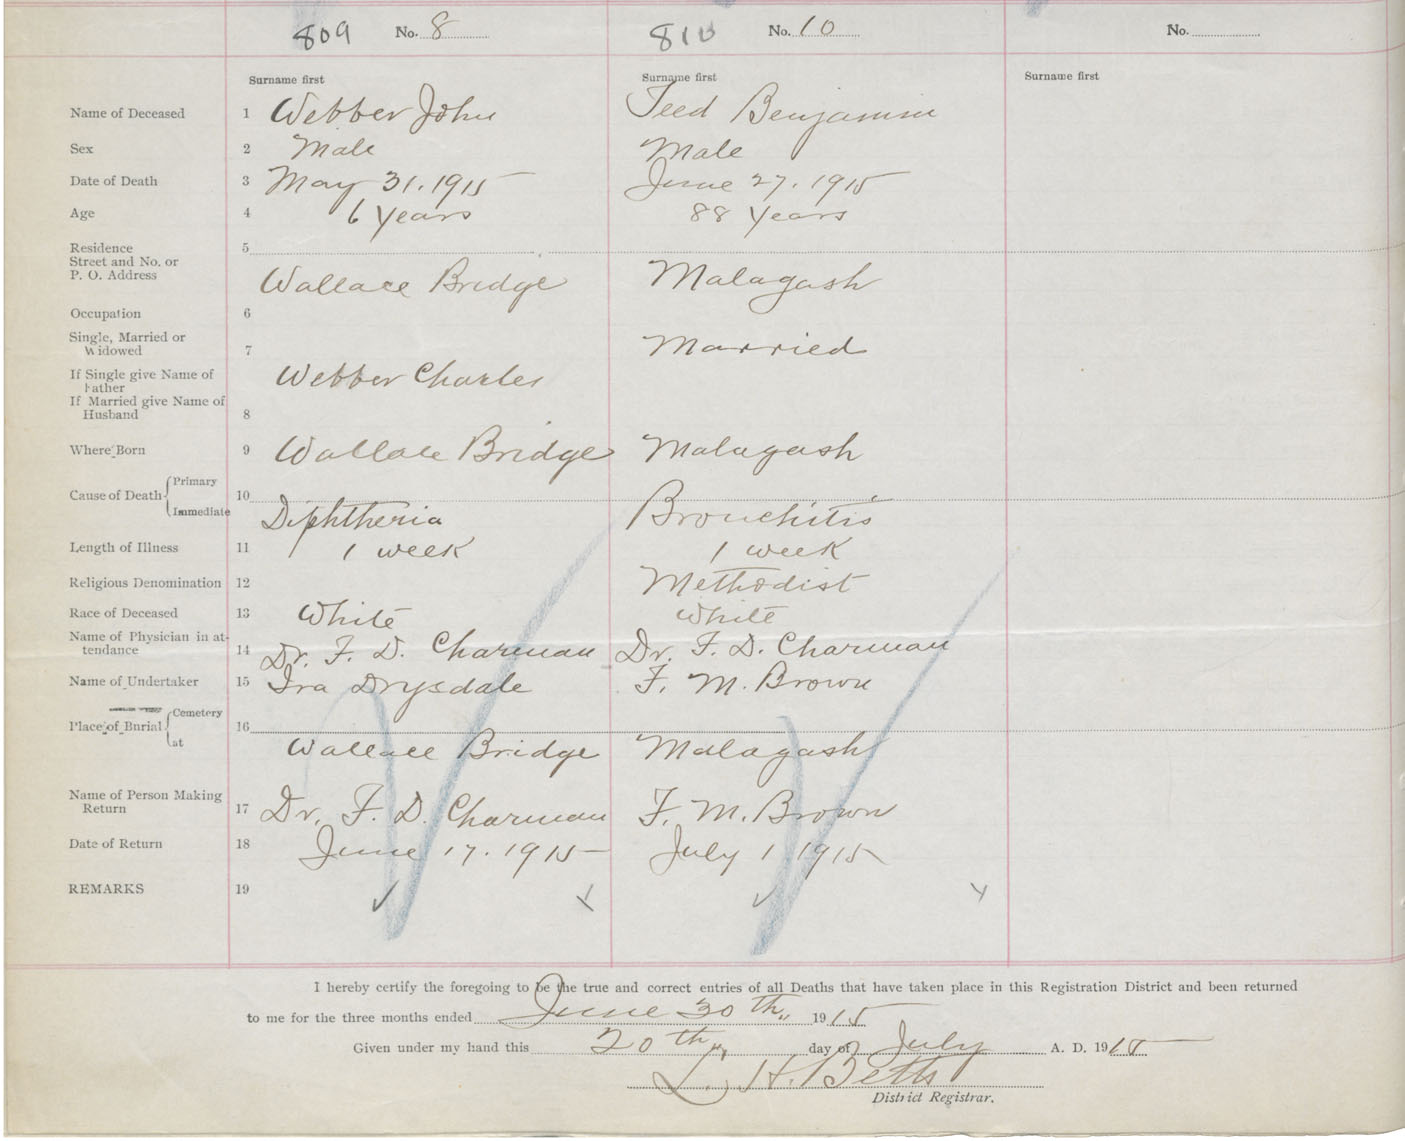 809 No. 8 810 No. 10 No.
Surname first Surname first Surname first
Name of Deceased 1 Webber John Teed Benjamin
Sex 2 Male Male
Date of Death 3 May 31. 1915 June 27. 1915
Age 4 6 Years 88 Years
Residence 5
Street and No. or
P. O. Address Wallace Bridge Malagash
Occupation 6
Single, Married or
Widowed 7 Married
If Single give Name of
Father Webber Charles
If Married give Name of
Husband 8
Where Born 9 Wallace Bridge Malagash
Primary
Cause of Death 10
Immediate Diphtheria Bronchitis
Length of Illness 11 1 week 1 week
Religious Denomination 12 Methodist
Race of Deceased 13 White White
Name of Physician in at-
tendance 14 Dr. F. D. Charman Dr. F. D. Charman
Name of Undertaker 15 Ira Drysdale F. M. Brown
Cemetery
Place of Burial 16
at Wallace Bridge Malagash
Name of Person Making
Return 17 Dr. F. D. Charman F. M. Brown
Date of Return 18 June 17. 1915 July 1 1915
REMARKS 19
I hereby certify the foregoing to be the true and correct entries of all Deaths that have taken place in this Registration District and been returned
to me for the three months ended June 30th 1915
Given under my hand this 20th day of July A. D. 1915
L. H. Betts
District Registrar.